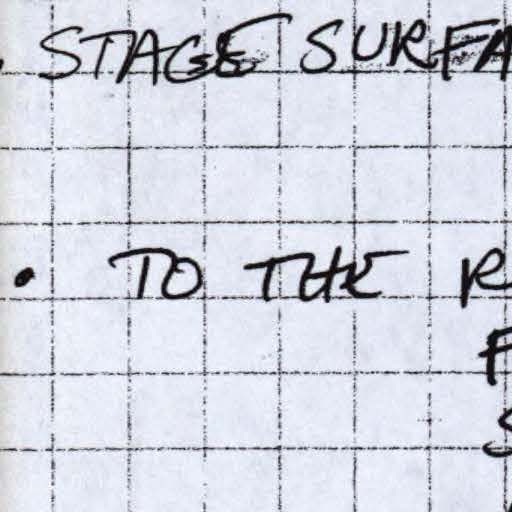 STAGE SURFA
• TO THE R
F
S